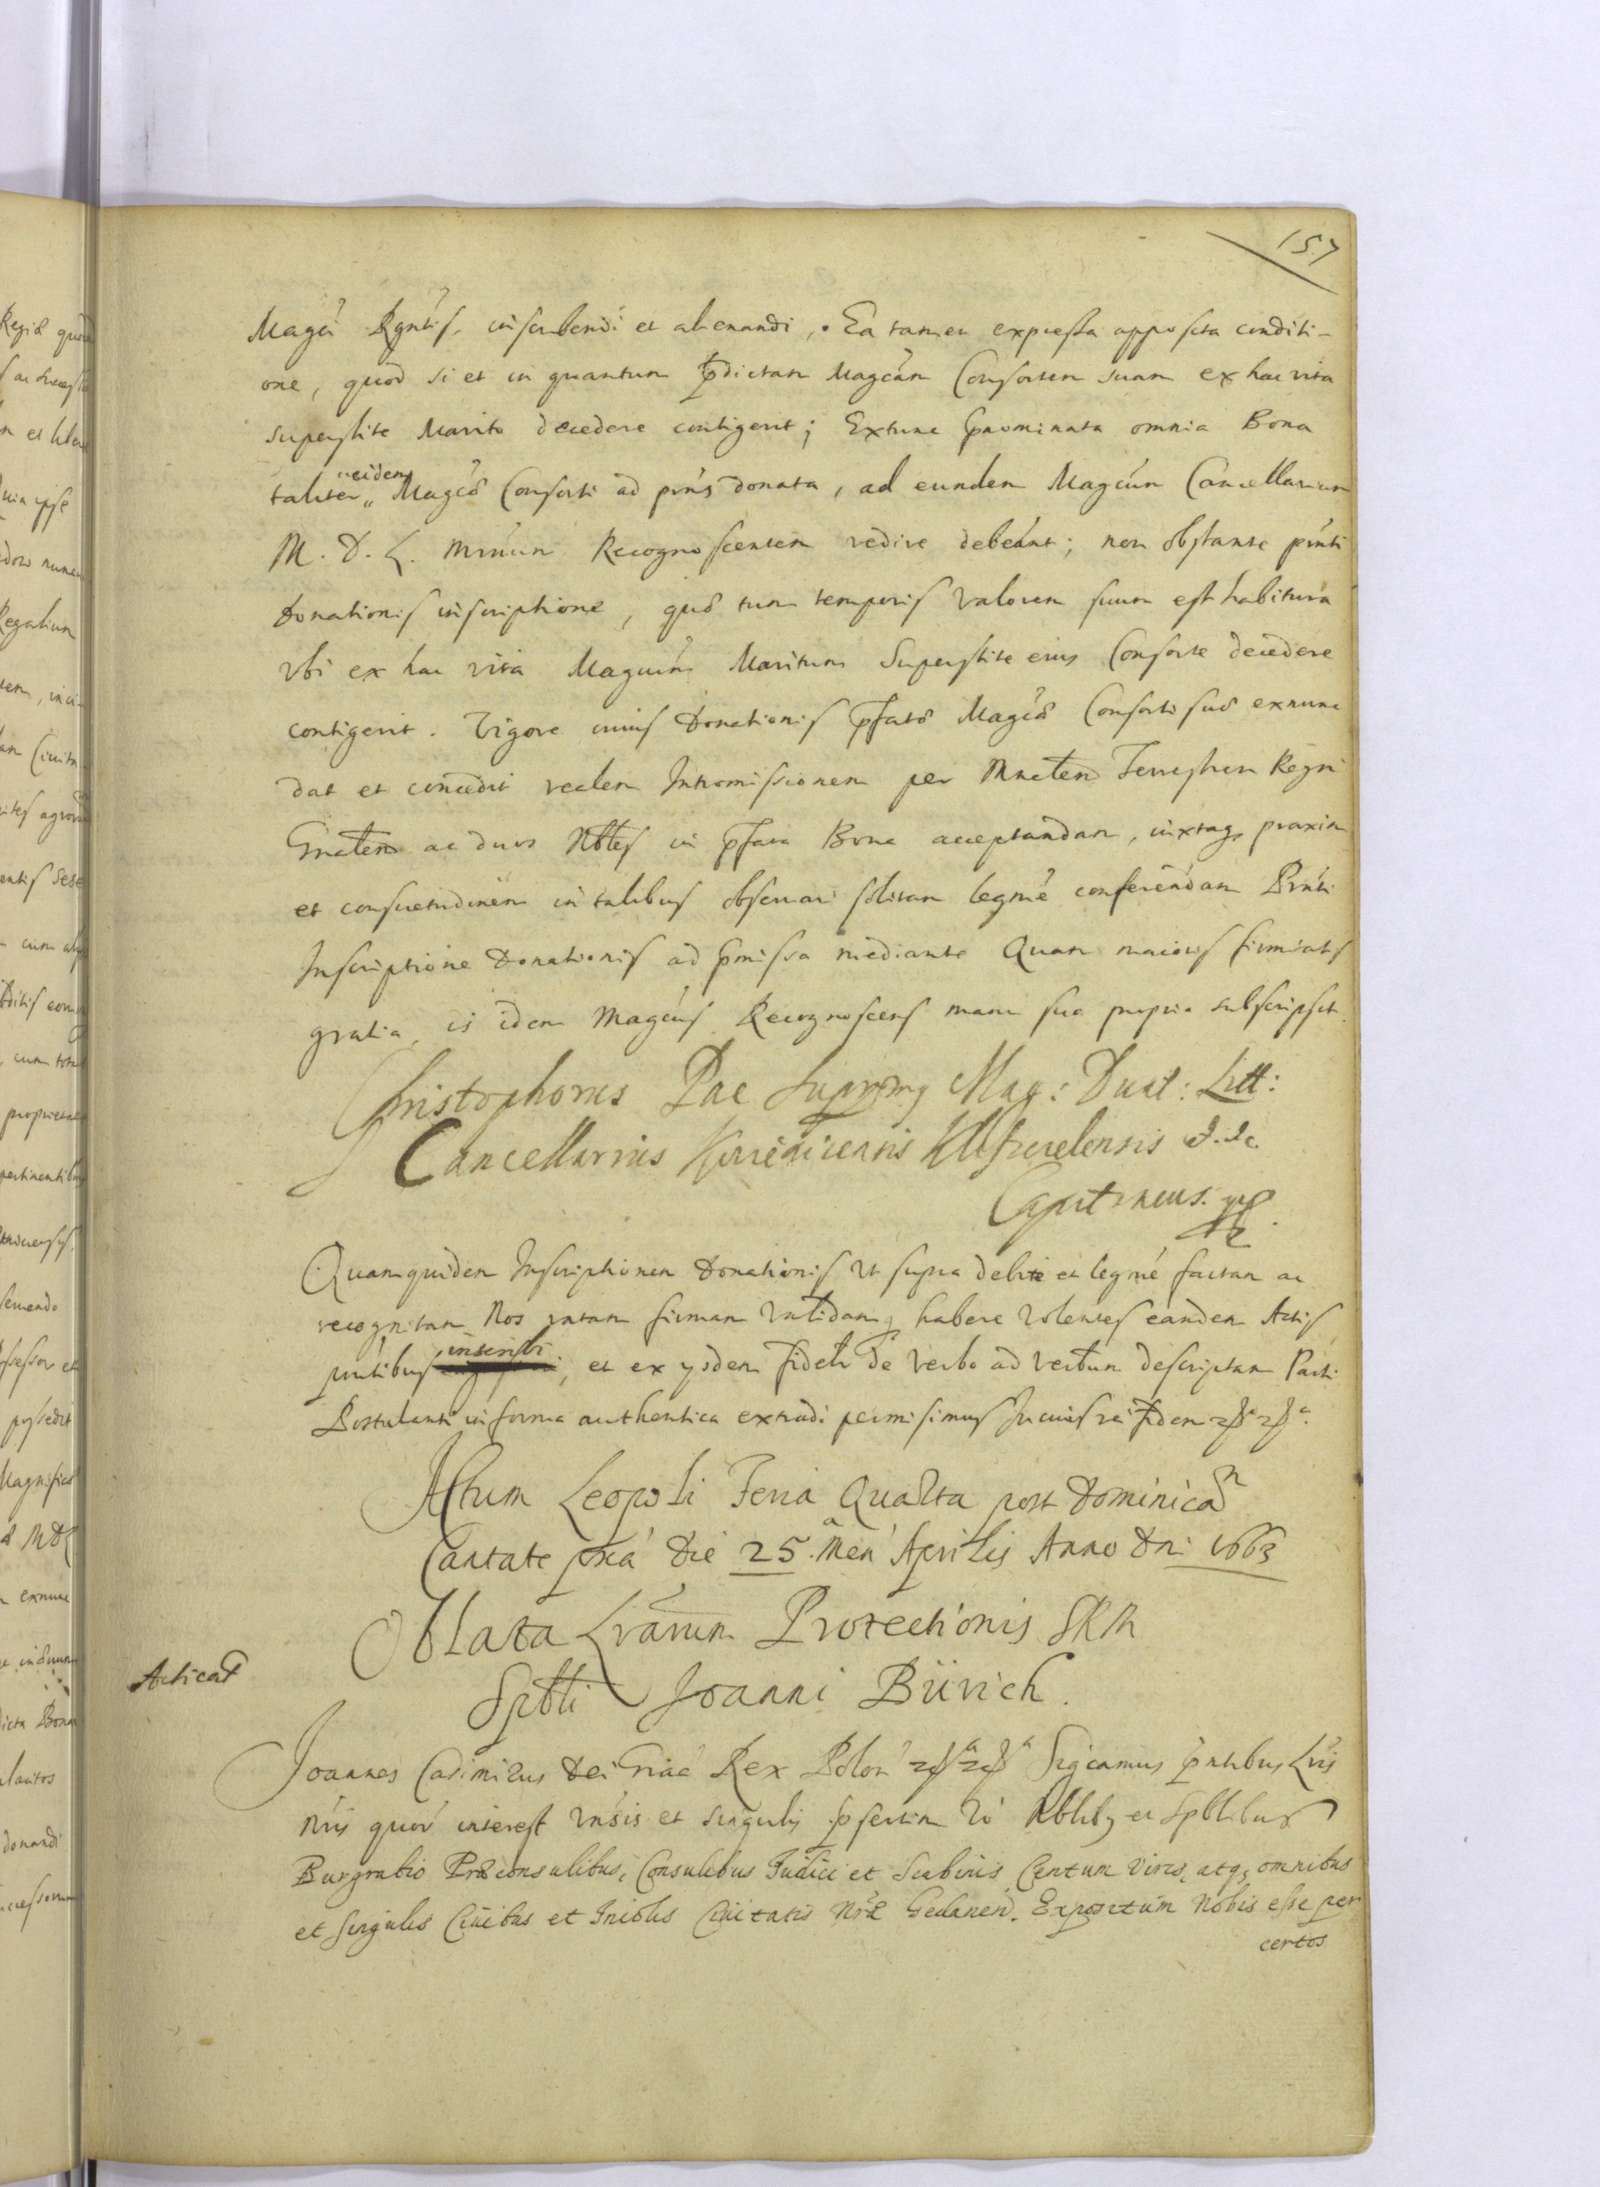 157
Magci Rgntis, inscribendi et alienandi, Ea tamen expressa apposita conditi-
one, quod si et in quantum p̄dictam Magcam Consortem suam ex hac vita
superstite Marito decedere contigerit; Extunc p̄nominata omnia Bona
taliter eidem Magcæ Consorti ad p̄ns donata, ad eundem Magcum Cancellarium
M. D. L. Recognoscentem redire debeant; non obstante p̄nti
donationis inscriptione, quæ tum temporis valorem suum est habitura
vbi ex hac vita Magcum Maritum Superstite eius Consorte decedere
contigerit. Vigore cuius Donationis p̄fatæ Magcæ Consorti suæ exnunc
dat et concedit realem Intromissionem per Mnrlem Terrestrem Regni
Gnrlem ac duos Nobles in p̄fata Bona acceptandam, iuxtaq praxim
et consuetudinem in talibus obseruari solitam legme conferendam Pnti
Inscriptione Donationis ad p̄missa mediante Quam maioris firmitatis
gratia is idem Magcus Recognoscens manu sua propria subscripsit.
Christophorus Pac Supremus Mag: Ducat: Litt:
Cancellarius &. &c.
Capitaneus. mp
Quamquidem Inscriptionem Donationis vt supra debite et legme factam ac
recognitam Nos ratam firmam validamq habere volentes eandem Actis
pntibus inscribi, et ex ysdem fidelr de verbo ad verbum descriptam Parti
Postulanti in forma authentica extradi permisimus In cuius rei fidem
Actum Leopoli Feria Quarta post Dominicam
Cantate p̄xa Die 25. a Men Aprilis Anno Dni 1663
Oblata Lrarum Protectionis SRM
Spbli Joanni Bürich.
Acticat
Joannes Casimirus Dei Gria Rex Polon Sigcamus p̄ntibus Lris
nris quor interest vnsis et singulis p̄sertim vo Nblib; et Spblibus
Burgrabio Præconsulibus, Consulibus Judici et Scabinis, Centum viris, atq; omnibus
et singulis Ciuibus et Incolis Ciuitatis Nræ Gedanen. Expositum Nobis esse per
certos